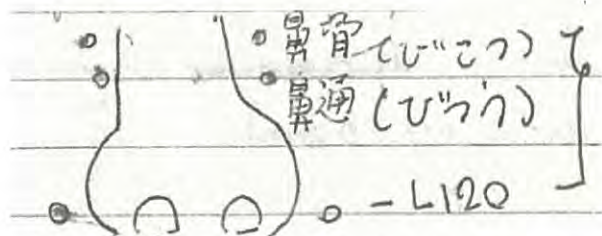 鼻骨(びこつ)て
鼻通(びつう)
-LI20